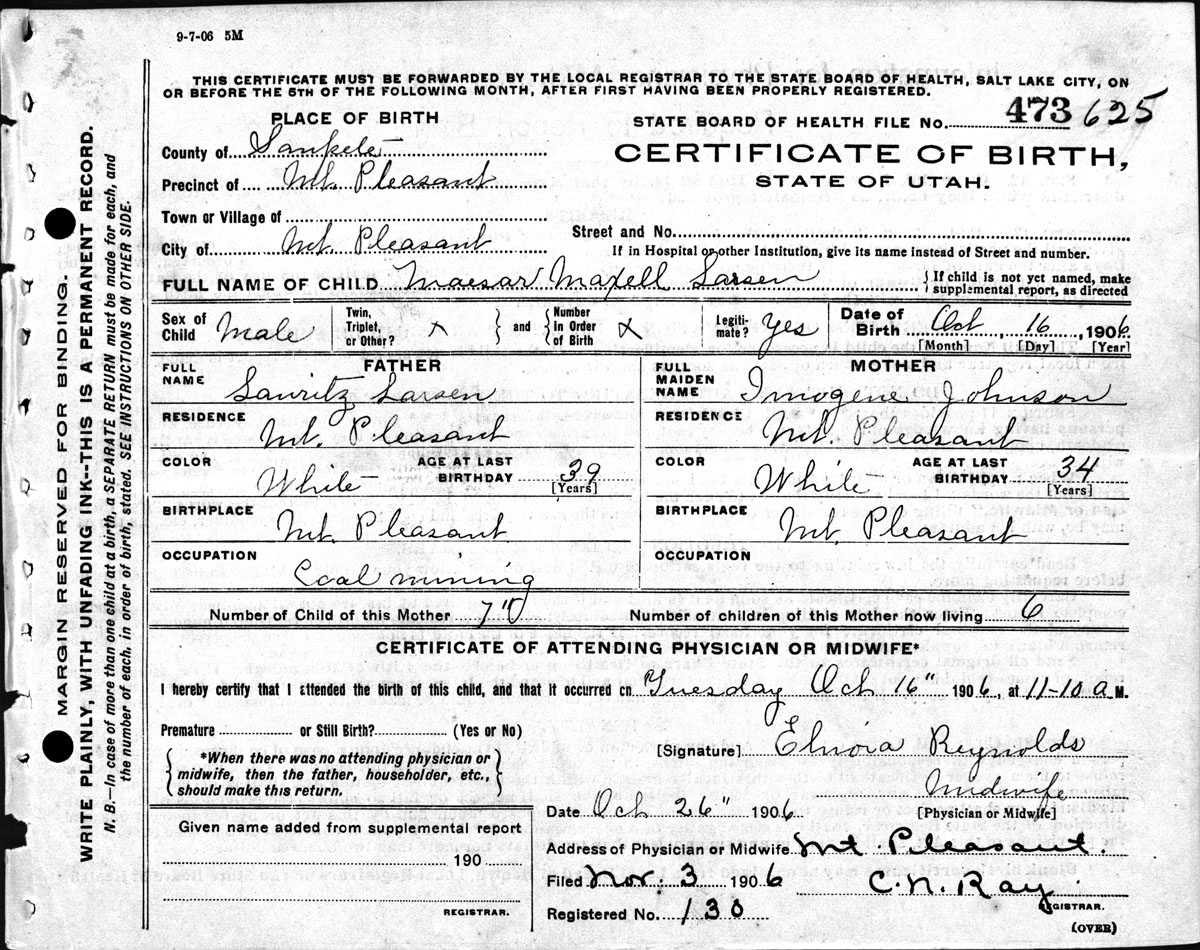 9-7-06 5M
THIS CERTIFICATE MUST BE FORWARDED BY THE LOCAL REGISTRAR TO THE STATE BOARD OF HEALTH, SALT LAKE CITY, ON
OR BEFORE THE 5TH OF THE FOLLOWING MONTH, AFTER FIRST HAVING BEEN PROPERLY REGISTERED.
PLACE OF BIRTH
STATE BOARD OF HEALTH FILE No. 473 625
County of Sanpete
CERTIFICATE OF BIRTH,
Precinct of Mt. Pleasant
STATE OF UTAH.
Town or Village of
Street and No.
City of Mt. Pleasant
If in Hospital or other Institution, give its name instead of Street and number.
FULL NAME OF CHILD Maesar Maxell Larsen { If child is not yet named, make supplemental report, as directed
Sex of Child Male Twin, Triplet, or Other? x } and { Number In Order of Birth x Legiti-mate? Yes Date of Birth Oct 16, 1906
[Month] [Day] [Year]
FATHER
MOTHER
FULL NAME Lauritz Larsen
FULL MAIDEN NAME Imogene Johnson
RESIDENCE Mt. Pleasant
RESIDENCE Mt. Pleasant
COLOR White AGE AT LAST BIRTHDAY 39 [Years]
COLOR White AGE AT LAST BIRTHDAY 34 [Years]
BIRTHPLACE Mt. Pleasant
BIRTHPLACE Mt. Pleasant
OCCUPATION Coal mining
OCCUPATION
Number of Child of this Mother 7 Number of children of this Mother now living 6
CERTIFICATE OF ATTENDING PHYSICIAN OR MIDWIFE*
I hereby certify that I attended the birth of this child, and that it occurred on Tuesday Oct 16" 1906, at 11-10 a M.
Premature or Still Birth? (Yes or No)
[Signature] Elnora Reynolds
{ *When there was no attending physician or
midwife, then the father, householder, etc.,
should make this return. }
Midwife
Date Oct 26" 1906 [Physician or Midwife]
Given name added from supplemental report
190
REGISTRAR.
Address of Physician or Midwife Mt Pleasant.
Filed Nov. 3 1906 C. N. Ray
REGISTRAR.
Registered No. 130
(OVER)
MARGIN RESERVED FOR BINDING.
WRITE PLAINLY, WITH UNFADING INK--THIS IS A PERMANENT RECORD.
N. B.—In case of more than one child at a birth, a SEPARATE RETURN must be made for each, and
the number of each, in order of birth, stated. SEE INSTRUCTIONS ON OTHER SIDE.